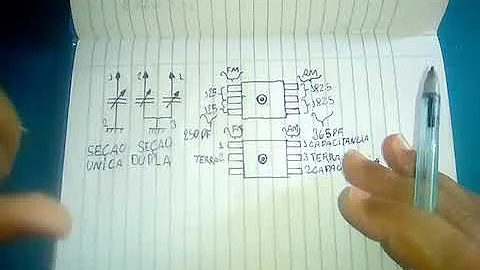 FM
AM
1
2
1
125
182.5
125
182.5
2
3
250PF
365PF
SEÇÃO
ÚNICA
SEÇÃO
DUPLA
FM
AM
1
2
TERRA
1 CAPACITÂNCIA
3 TERRA
2